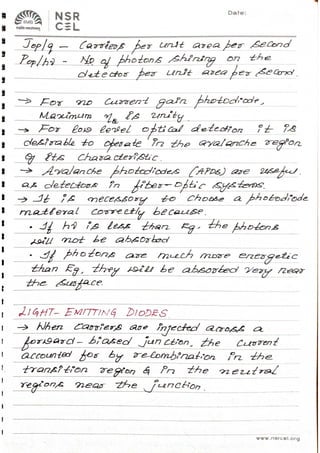 NSR
CEL
Date:
Jop/q – Carriers per unit area per second
Pop/hν - No of photons shining on the
detector per unit area per second.
→ For no current gain photodiode,
Maximum η is unity.
→ For low level optical detection it is
desirable to operate in the avalanche region
of its characteristic.
→ Avalanche photodiodes (APDs) are useful
as detectors in fiber-optic systems.
→ It is necessary to choose a photodiode
material correctly because.
• If hν is less than Eg, the photons
will not be absorbed
• If photons are much more energetic
than Eg, they will be absorbed very near
the surface.
LIGHT- EMITTING DIODES.
→ When carriers are injected across a
forward-biased junction, the current
accounted for by recombination in the
transition region & in the neutral
regions near the junction.
www.nsrcel.org